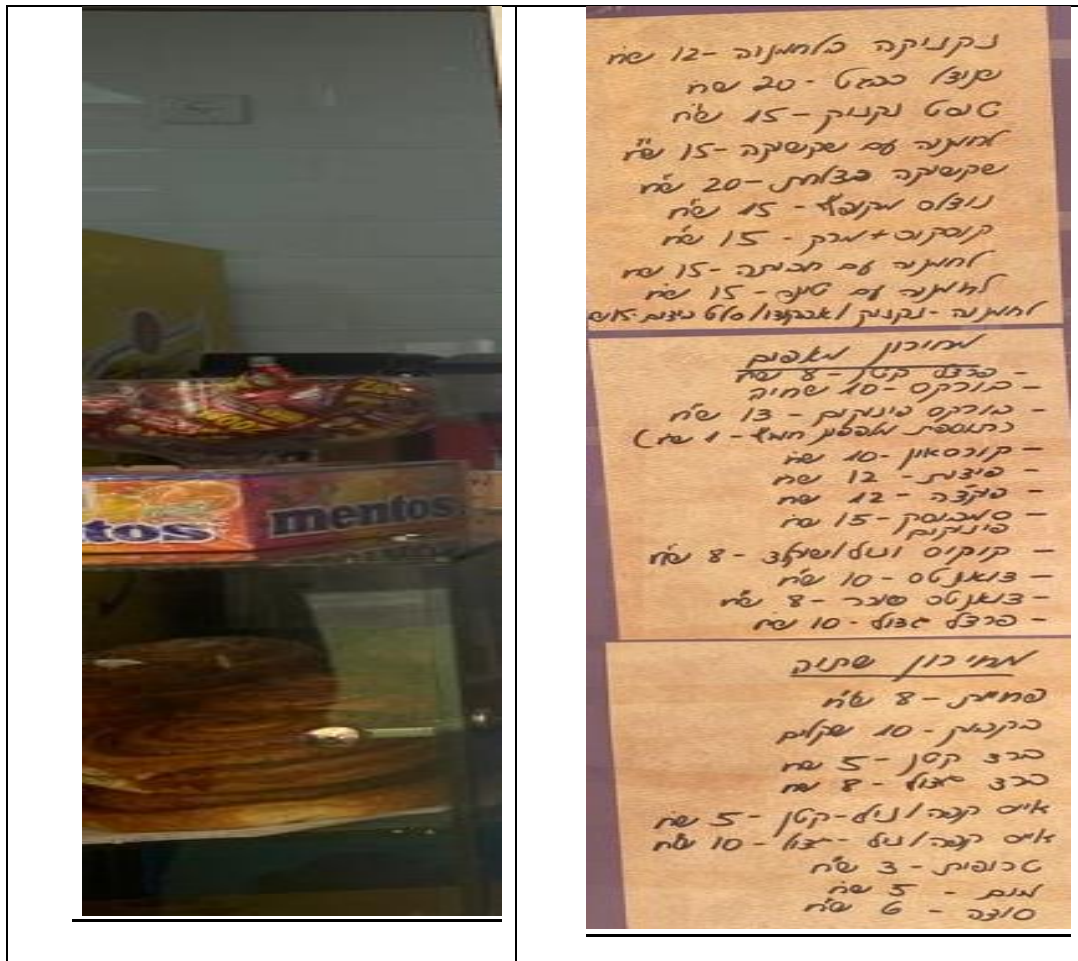 נקניקה בלחמניה -12 ש"ח
שניצל בבגט - 20 ש"ח
טוסט נקניק - 15 ש"ח
לחמניה עם שקשוקה -15 ש"ח
שקשוקה בצלחת -20 ש"ח
נודלס מוקפץ - 15 ש"ח
קוסקוס+מרק - 15 ש"ח
לחמניה עם חביתה -15 ש"ח
לחמניה עם טונה - 15 ש"ח
לחמניה -נקניק/אבוקדו/סלט ביצים-15ש
מחירון מאפים
- פרצל קטן - 8 ש"ח
- בורקס - 10 שח
- בורקס פינוקים - 13 ש"ח
(בתוספת חמוץ - 1 ש"ח)
- קורסאון -10 ש"ח
- פיצות - 12 ש"ח
- 12 ש"ח
- סמבוסק - 15 ש"ח
פינוקים
- וניל/שוקולד - 8 ש"ח
- דואנטס - 10 ש"ח
- דואנטס סוכר - 8 ש"ח
- פרצל גדול - 10 ש"ח
מחירון שתיה
פחיות - 8 ש"ח
בקבוק - 10 שקלים
ברד קטן - 5 ש"ח
ברד גדול - 8 ש"ח
אייס קפה/וניל -קטן - 5 ש"ח
אייס קפה/וניל - גדול - 10 ש"ח
טרופית - 3 ש"ח
מים - 5 ש"ח
סודה - 6 ש"ח
tos
mentos